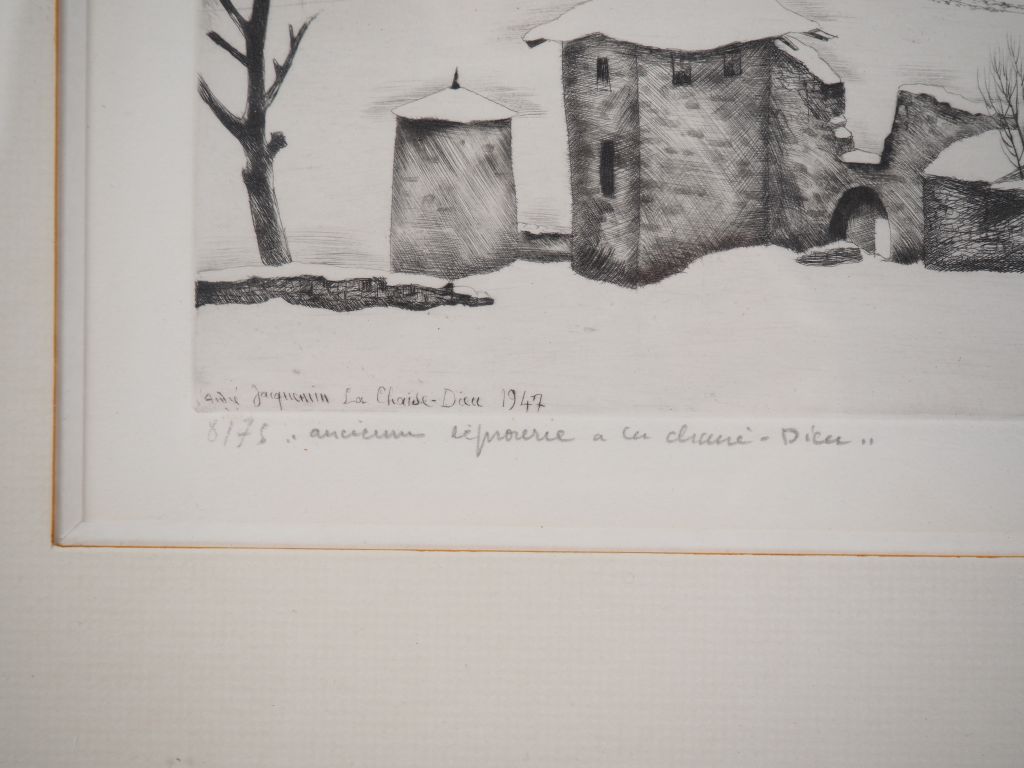 andré Jacquemin La Chaise-Dieu 1947
8/75 " ancienne léproserie a la chaise-Dieu "